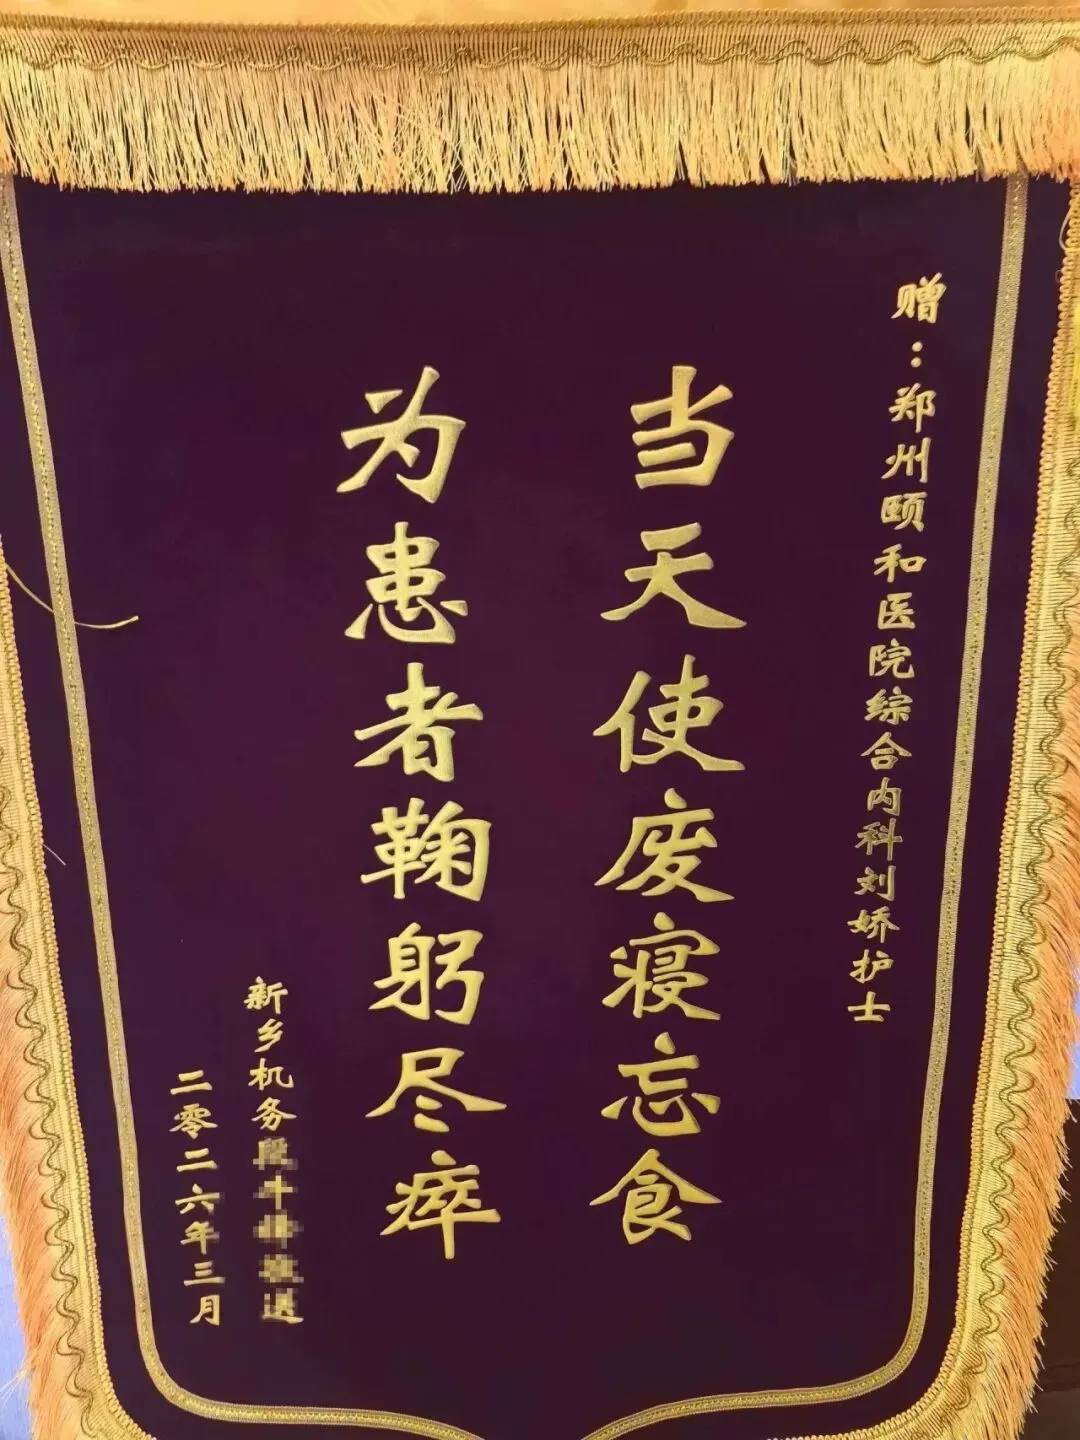 赠：郑州颐和医院综合内科刘娇护士
当天使废寝忘食
为患者鞠躬尽瘁
新乡机务
二零二六年三月